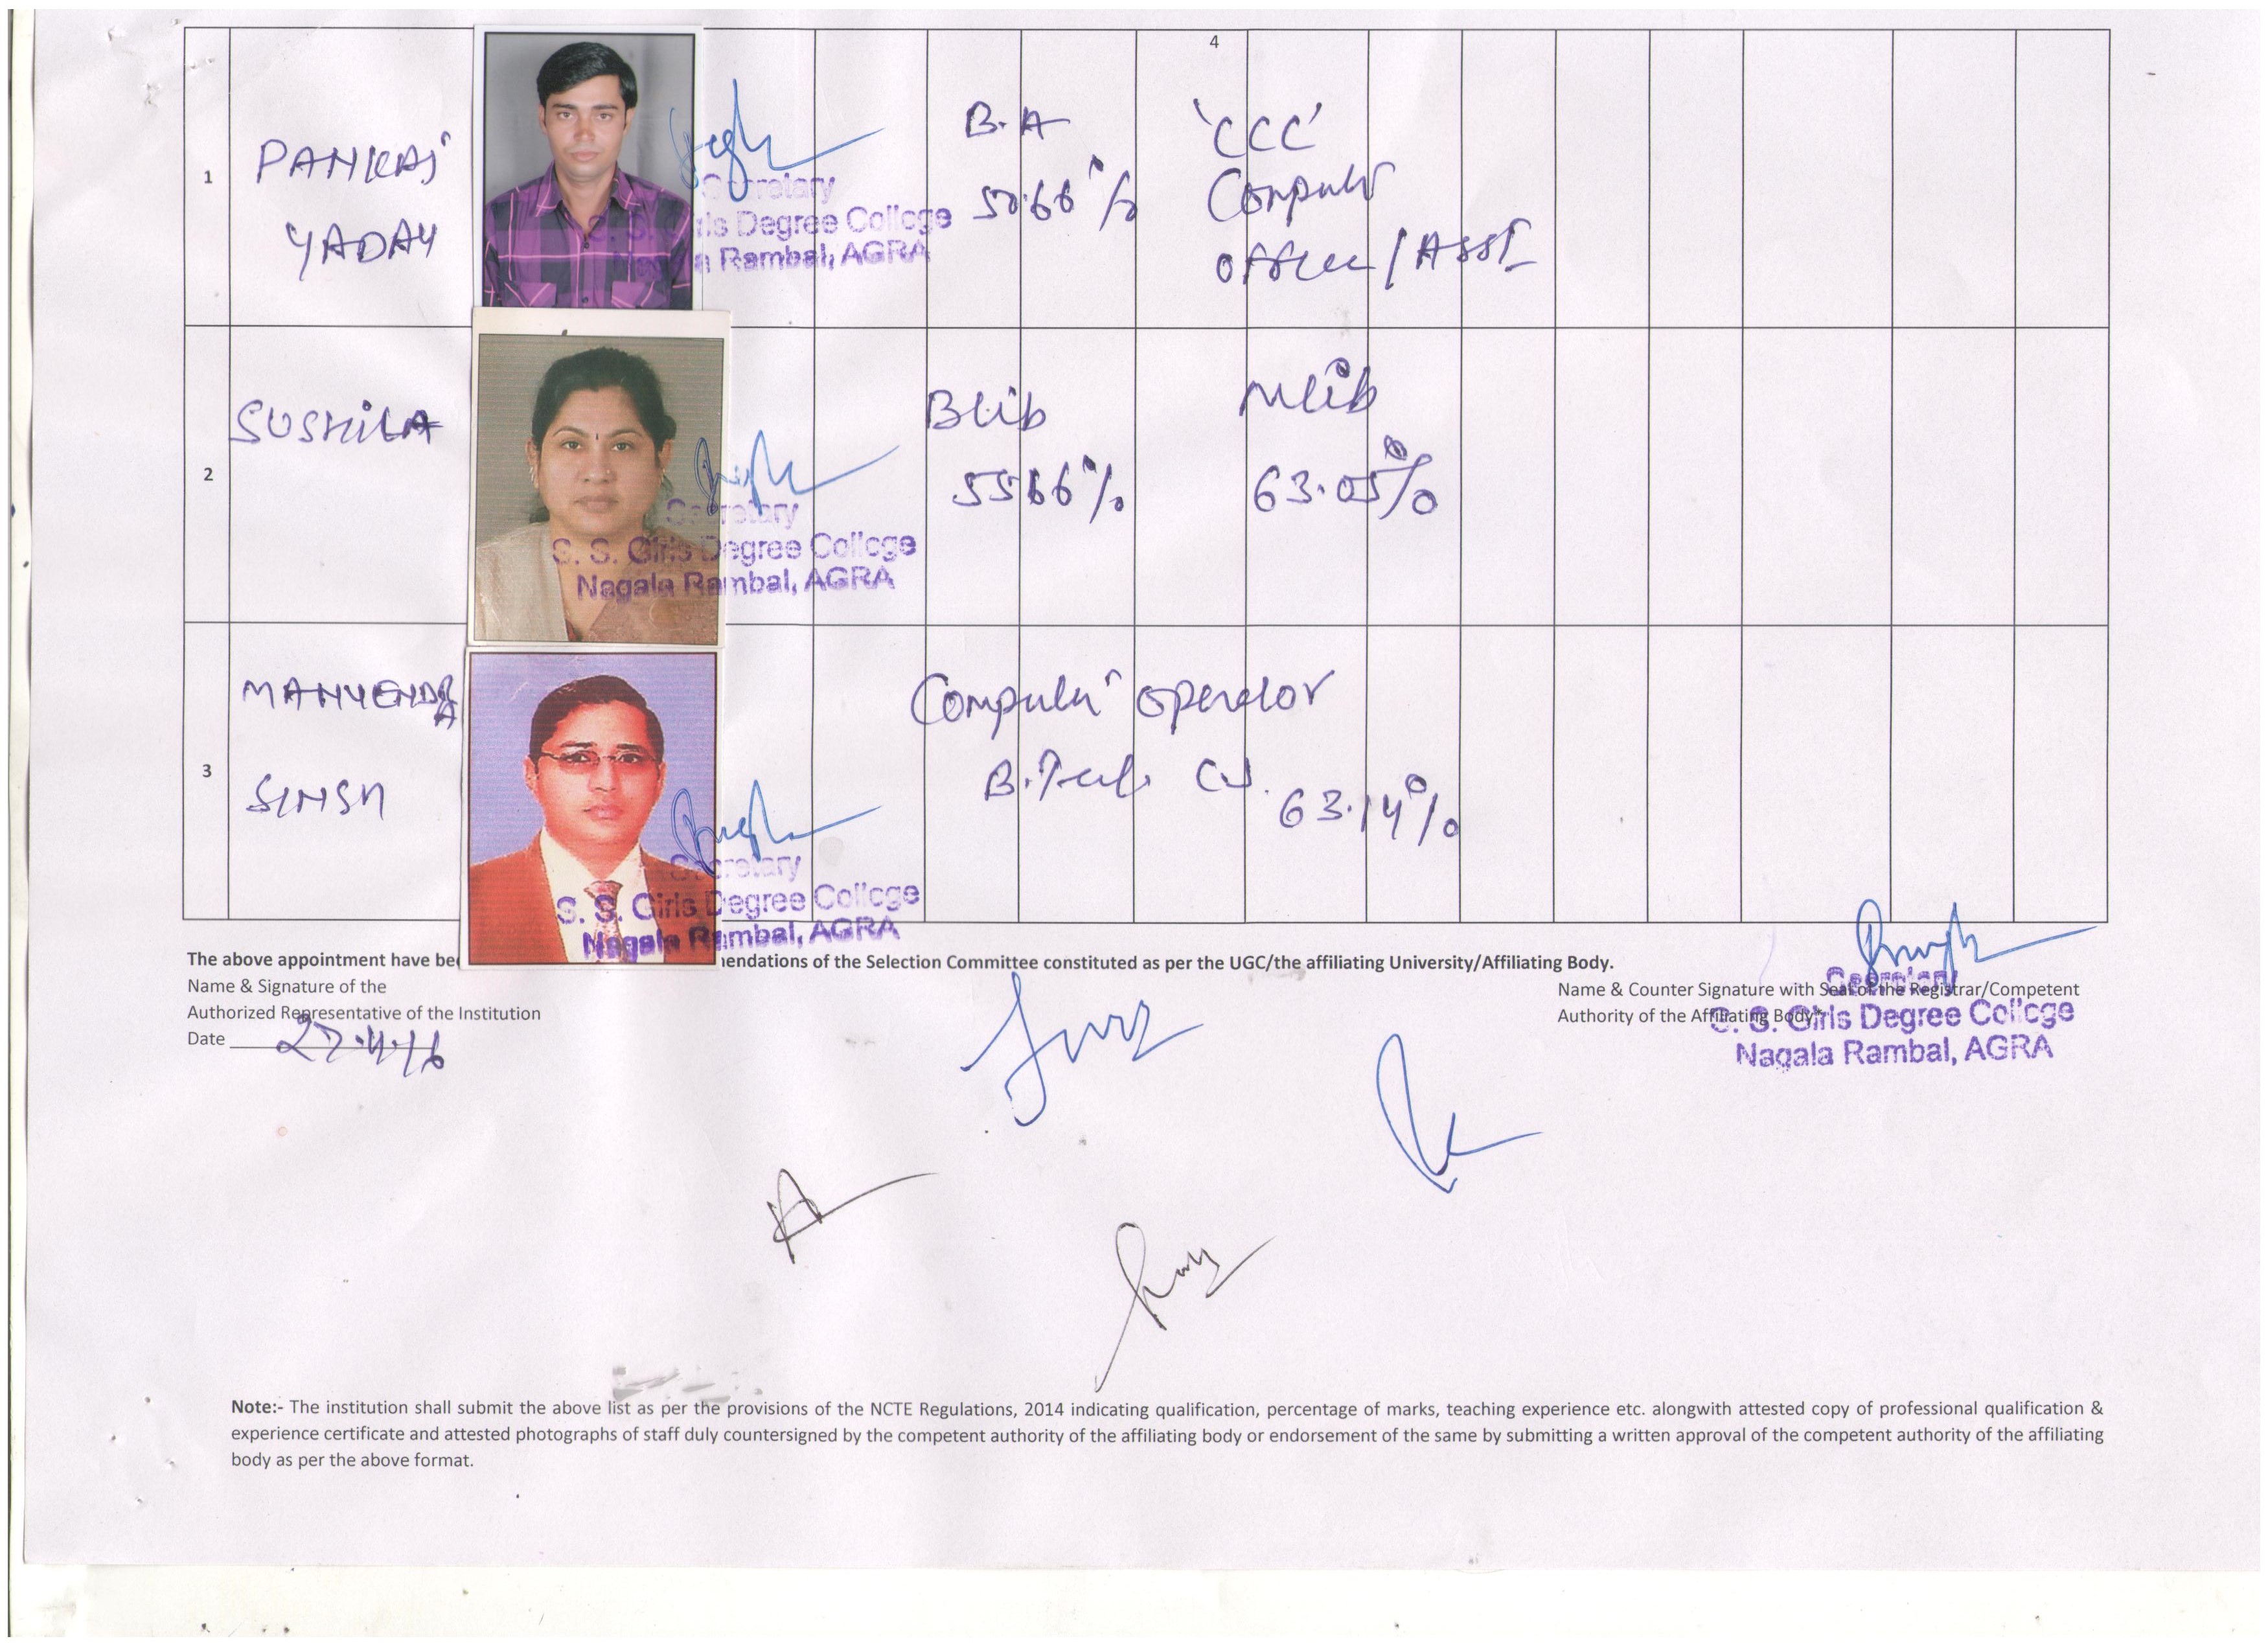 4
1
PANKAJ
YADAV
B.A
50.66%
'CCC'
Computer
Officer / ASST
Secretary
S. S. Girls Degree College
Nagala Rambal, AGRA
2
SUSHILA
Blib
55.66%
Mlib
63.05%
Secretary
S. S. Girls Degree College
Nagala Rambal, AGRA
3
MANVENDRA
SINGH
Computer operator
B.Tech. CS.
63.14%
Secretary
S. S. Girls Degree College
Nagala Rambal, AGRA
The above appointment have mendations of the Selection Committee constituted as per the UGC/the affiliating University/Affiliating Body.
Name & Signature of the
Authorized Representative of the Institution
Date 27.4.16
Name & Counter Signature with Seal of the Registrar/Competent
Authority of the Affiliating Body*
Secretary
S. S. Girls Degree College
Nagala Rambal, AGRA
Note:- The institution shall submit the above list as per the provisions of the NCTE Regulations, 2014 indicating qualification, percentage of marks, teaching experience etc. alongwith attested copy of professional qualification &
experience certificate and attested photographs of staff duly countersigned by the competent authority of the affiliating body or endorsement of the same by submitting a written approval of the competent authority of the affiliating
body as per the above format.